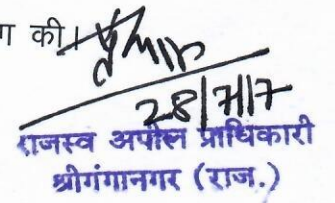 ग की।
28/7/17
राजस्व अपील प्राधिकारी
श्रीगंगानगर (राज.)